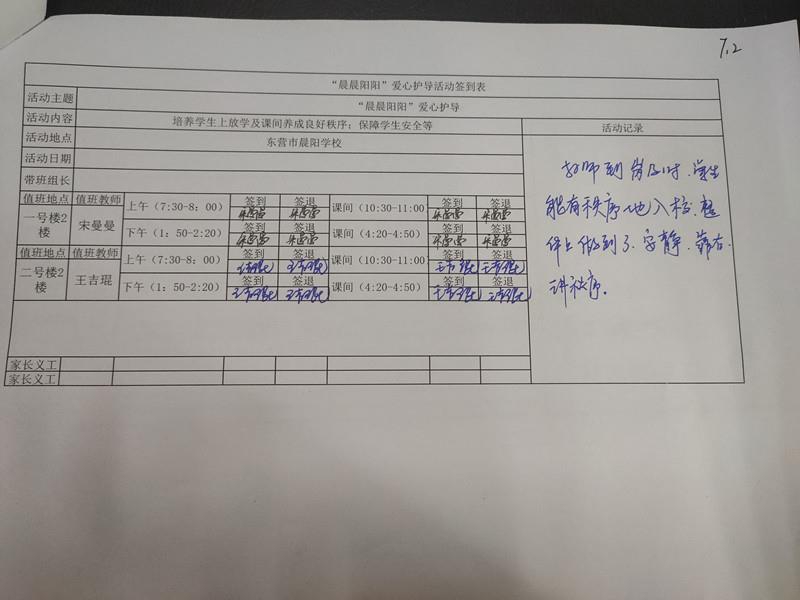 7.2
“晨晨阳阳”爱心护导活动签到表
活动主题 “晨晨阳阳”爱心护导
活动内容 培养学生上放学及课间养成良好秩序；保障学生安全等 活动记录
活动地点 东营市晨阳学校
活动日期
带班组长
值班地点 值班教师 上午（7:30-8：00） 签到 签退 课间（10:30-11:00 签到 签退
宋曼曼 宋曼曼 宋曼曼 宋曼曼
一号楼2楼 宋曼曼 下午（1：50-2:20） 签到 签退 课间（4:20-4:50） 签到 签退
宋曼曼 宋曼曼 宋曼曼 宋曼曼
值班地点 值班教师 上午（7:30-8：00） 签到 签退 课间（10:30-11:00 签到 签退
王吉琨 王吉琨 王吉琨 王吉琨
二号楼2楼 王吉琨 下午（1：50-2:20） 签到 签退 课间（4:20-4:50） 签到 签退
王吉琨 王吉琨 王吉琨 王吉琨
家长义工
家长义工
教师到岗及时.学生
能有秩序地入校.整
体上做到了.安静.靠右.
讲秩序.